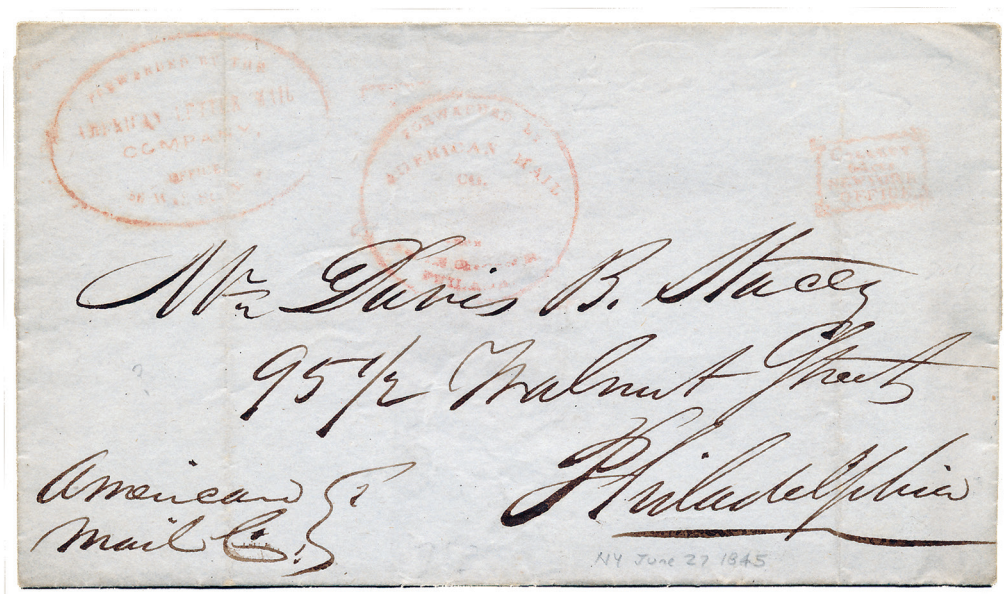 FORWARDED BY
LETTER MAIL
COMPANY,
OFFICE
FORWARDED BY
AMERICAN MAIL
CO.
PHILADA
OFFICE
Mr Davis B. Stacey
95 1/2 Walnut Street
Philadelphia
American
Mail Co.
NY June 27 1845